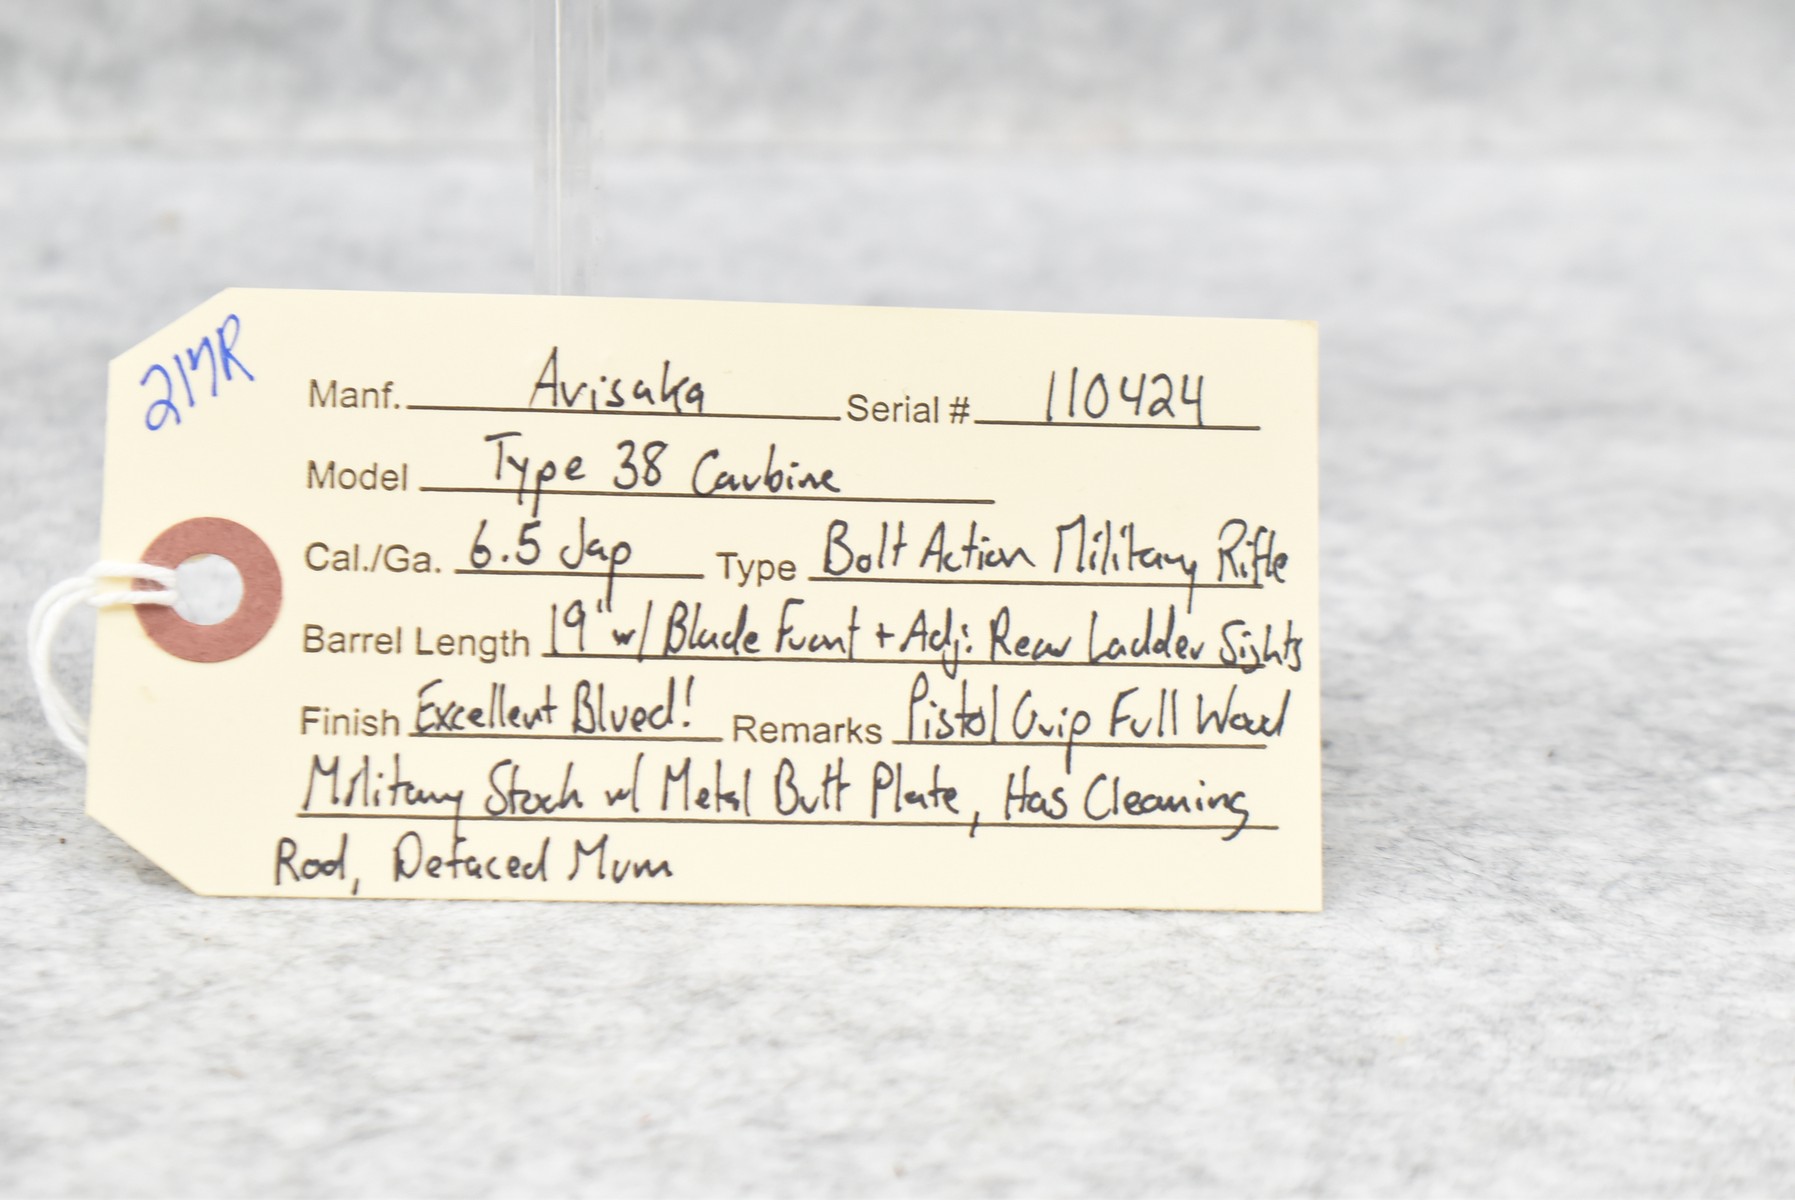 217R
Manf. Arisaka Serial # 110424
Model Type 38 Carbine
Cal./Ga. 6.5 Jap Type Bolt Action Military Rifle
Barrel Length 19" w/ Blade Front + Adj. Rear Ladder Sights
Finish Excellent Blued! Remarks Pistol Grip Full Wood
Military Stock w/ Metal Butt Plate, Has Cleaning
Rod, Defaced Mum